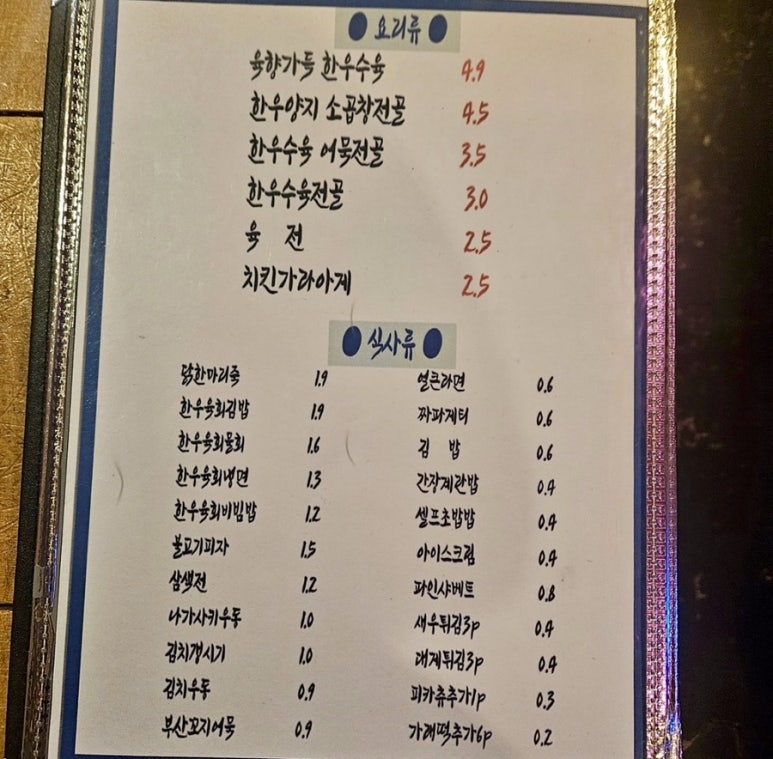 요리류
육향가득 한우수육 4.9
한우양지 소곱창전골 4.5
한우수육 어묵전골 3.5
한우수육전골 3.0
육 전 2.5
치킨가라아게 2.5
식사류
닭한마리죽 1.9
한우육회김밥 1.9
한우육회물회 1.6
한우육회냉면 1.3
한우육회비빔밥 1.2
불고기피자 1.5
삼색전 1.2
나가사키우동 1.0
김치갱시기 1.0
김치우동 0.9
부산꼬지어묵 0.9
얼큰라면 0.6
짜파게티 0.6
김 밥 0.6
간장계란밥 0.4
셀프초밥밥 0.4
아이스크림 0.4
파인샤베트 0.8
새우튀김3p 0.4
대게튀김3p 0.4
피카츄추가1p 0.3
가래떡추가6p 0.2